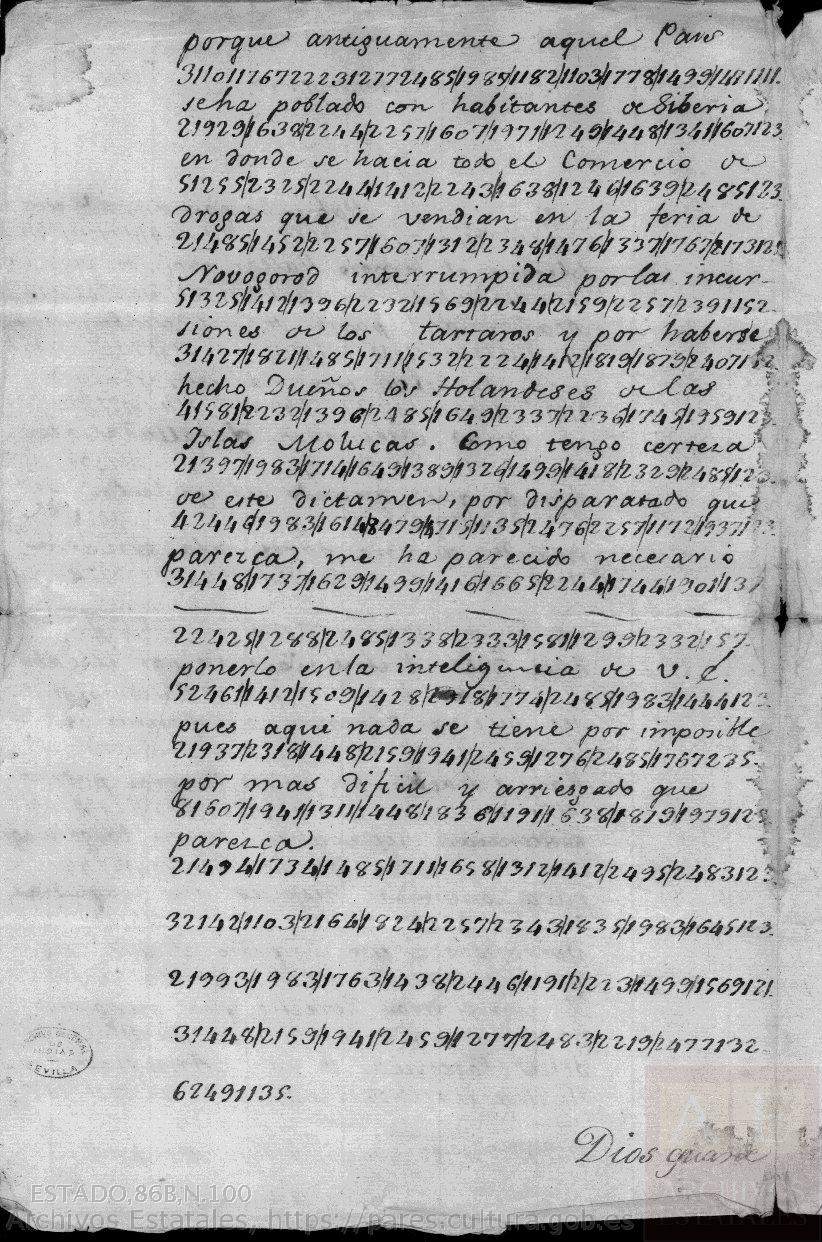 porque antiguamente aquel Pais
31101176722231277248511985/1182/1103/1778/1499/1481111.
se ha poblado con habitantes de Siberia
21929/1638/2244/2257/1607/1971/1249/1448/1341/1607123
en donde se hacia todo el Comercio de
51255/2325/2244/1412/2243/1638/1246/1639/2485123
drogas que se vendian en la feria de
21485/1452/2257/1607/1312/2348/1476/1337/1767/217312
Novogorod interrumpida por las incur-
51325/1412/1396/2232/1569/2244/2159/2257/2391152-
siones de los tartaros y por haberse
31427/1821/1485/1711/1532/2224/1412/1819/1879/2407152
hecho Dueños los Holandeses de las
41581/2232/1396/2485/1649/2337/2236/1745/195912
Islas Molucas. Como tengo certeza
21397/1983/1714/1649/1389/1326/1499/1418/2329/248512
de este dictamen, por disparatado que
42446/1983/1614/8479/1715/1135/2476/2257/1172/1937123
parezca, me ha parecido necesario
31448/1737/1629/1499/1416/1665/2244/1744/1901137
22425/1288/2485/1338/2333/1581/1299/2332157-
ponerlo en la inteligencia de V. E.
52461/1412/1509/1428/2318/1774/2485/1983/1444123
pues aqui nada se tiene por imposible
21937/2318/1448/2159/1941/2459/1276/2485/1767235-
por mas dificil y arriesgado que
81607/1941/1311/1448/1836/1191/1638/1819/197912
parezca.
21494/1734/1485/1711/1658/1312/1412/2495/248312
32142/1103/2164/1824/2257/2343/1835/1983/1645123-
21993/1983/1763/1438/2446/1191/2/223/1499/1569121.
31448/2159/1941/2459/1277/2483/2219/2477132-
62491135-
Dios guarde
SEVILLA
ESTADO,86B,N,100
Archivos Estatales, https://pares.cultura.gob.es
ARCHIVOS
ESTATALES